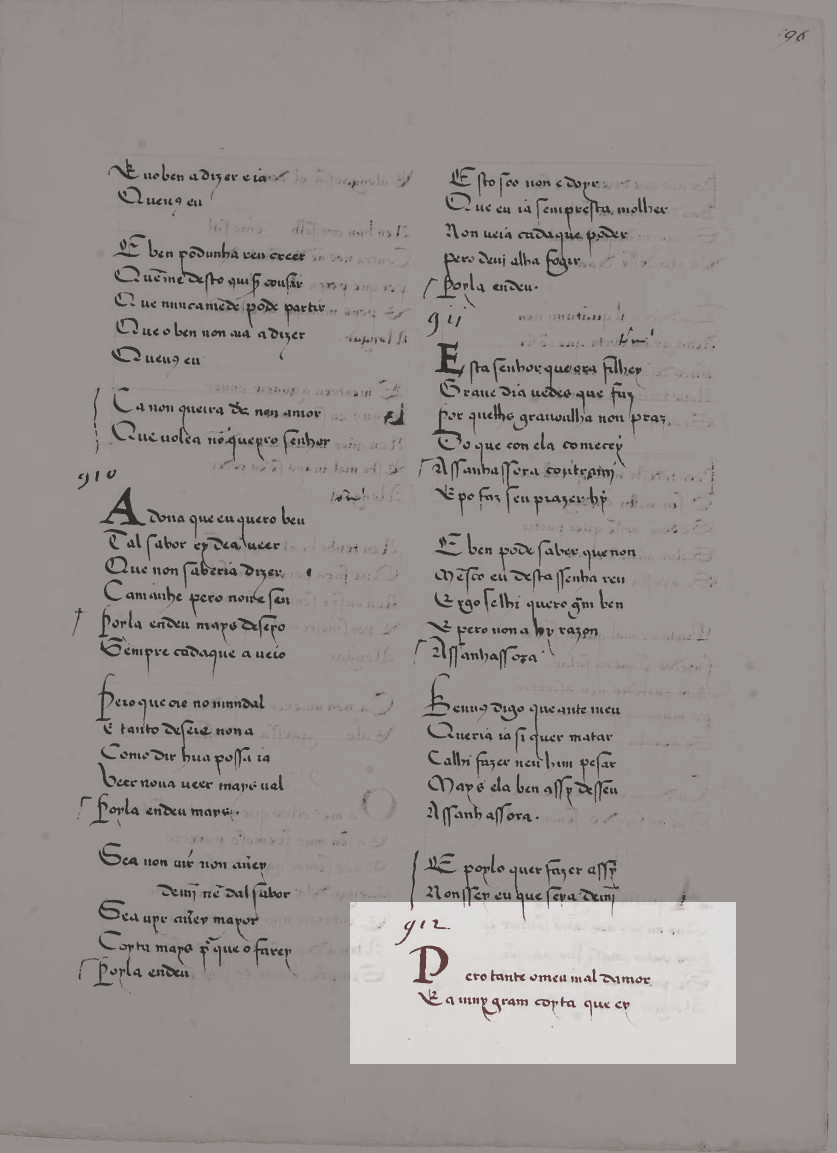 96
E uoben a dizer e ia
Queu9 eu
E ben podunha reu creer
Que me desto qui cousir
Que nunca mede pode partir
Que o ben non aia a dizer
Queu9 eu
Ca non queira nen amor
Que uolea nō quepro senhor
910
A dona que eu quero ben
Tal sabor ey dea ueer
Que non saberia dizer
Camanhe pero noire sen
Porla endeu mays deseio
Sempre cadaque a ueio
Pero que ore no mundal
E tanto deseie non a
Como dir hua possa ia
Veer noua ueer mays ual
Porla endeu mays.
Sea non uir non auey
demī nē dal sabor
Sea uyr auey mayor
Coyta mays que o farey
Porla endeu
Esto sco non e doyr
Que eu ia sempresta molher
Non ueia cadaque poder
pero denj alha fogir
Porla endeu.
911
Esta senhor que ora filhey
Graue dia uedes que fuy
Por quelhe grauoulha non praz
Do que con ela comecey
Assanhassora contramj
E po faz seu prazer hy
E ben pode saber que non
Mēsco eu desta ssenha reu
Ergo selhi quero grm ben
E pero non a hy razon
Assanhassora
Benu9 digo que ante meu
Queria ia si quer matar
Calhi fazer neu hum pesar
Mays ela ben assy desseu
Assanhassora.
E poylo quer fazer assy
Non ssey eu que sera demj
912.
Pero tante omeu mal damor
E a muy gram coyta que ey